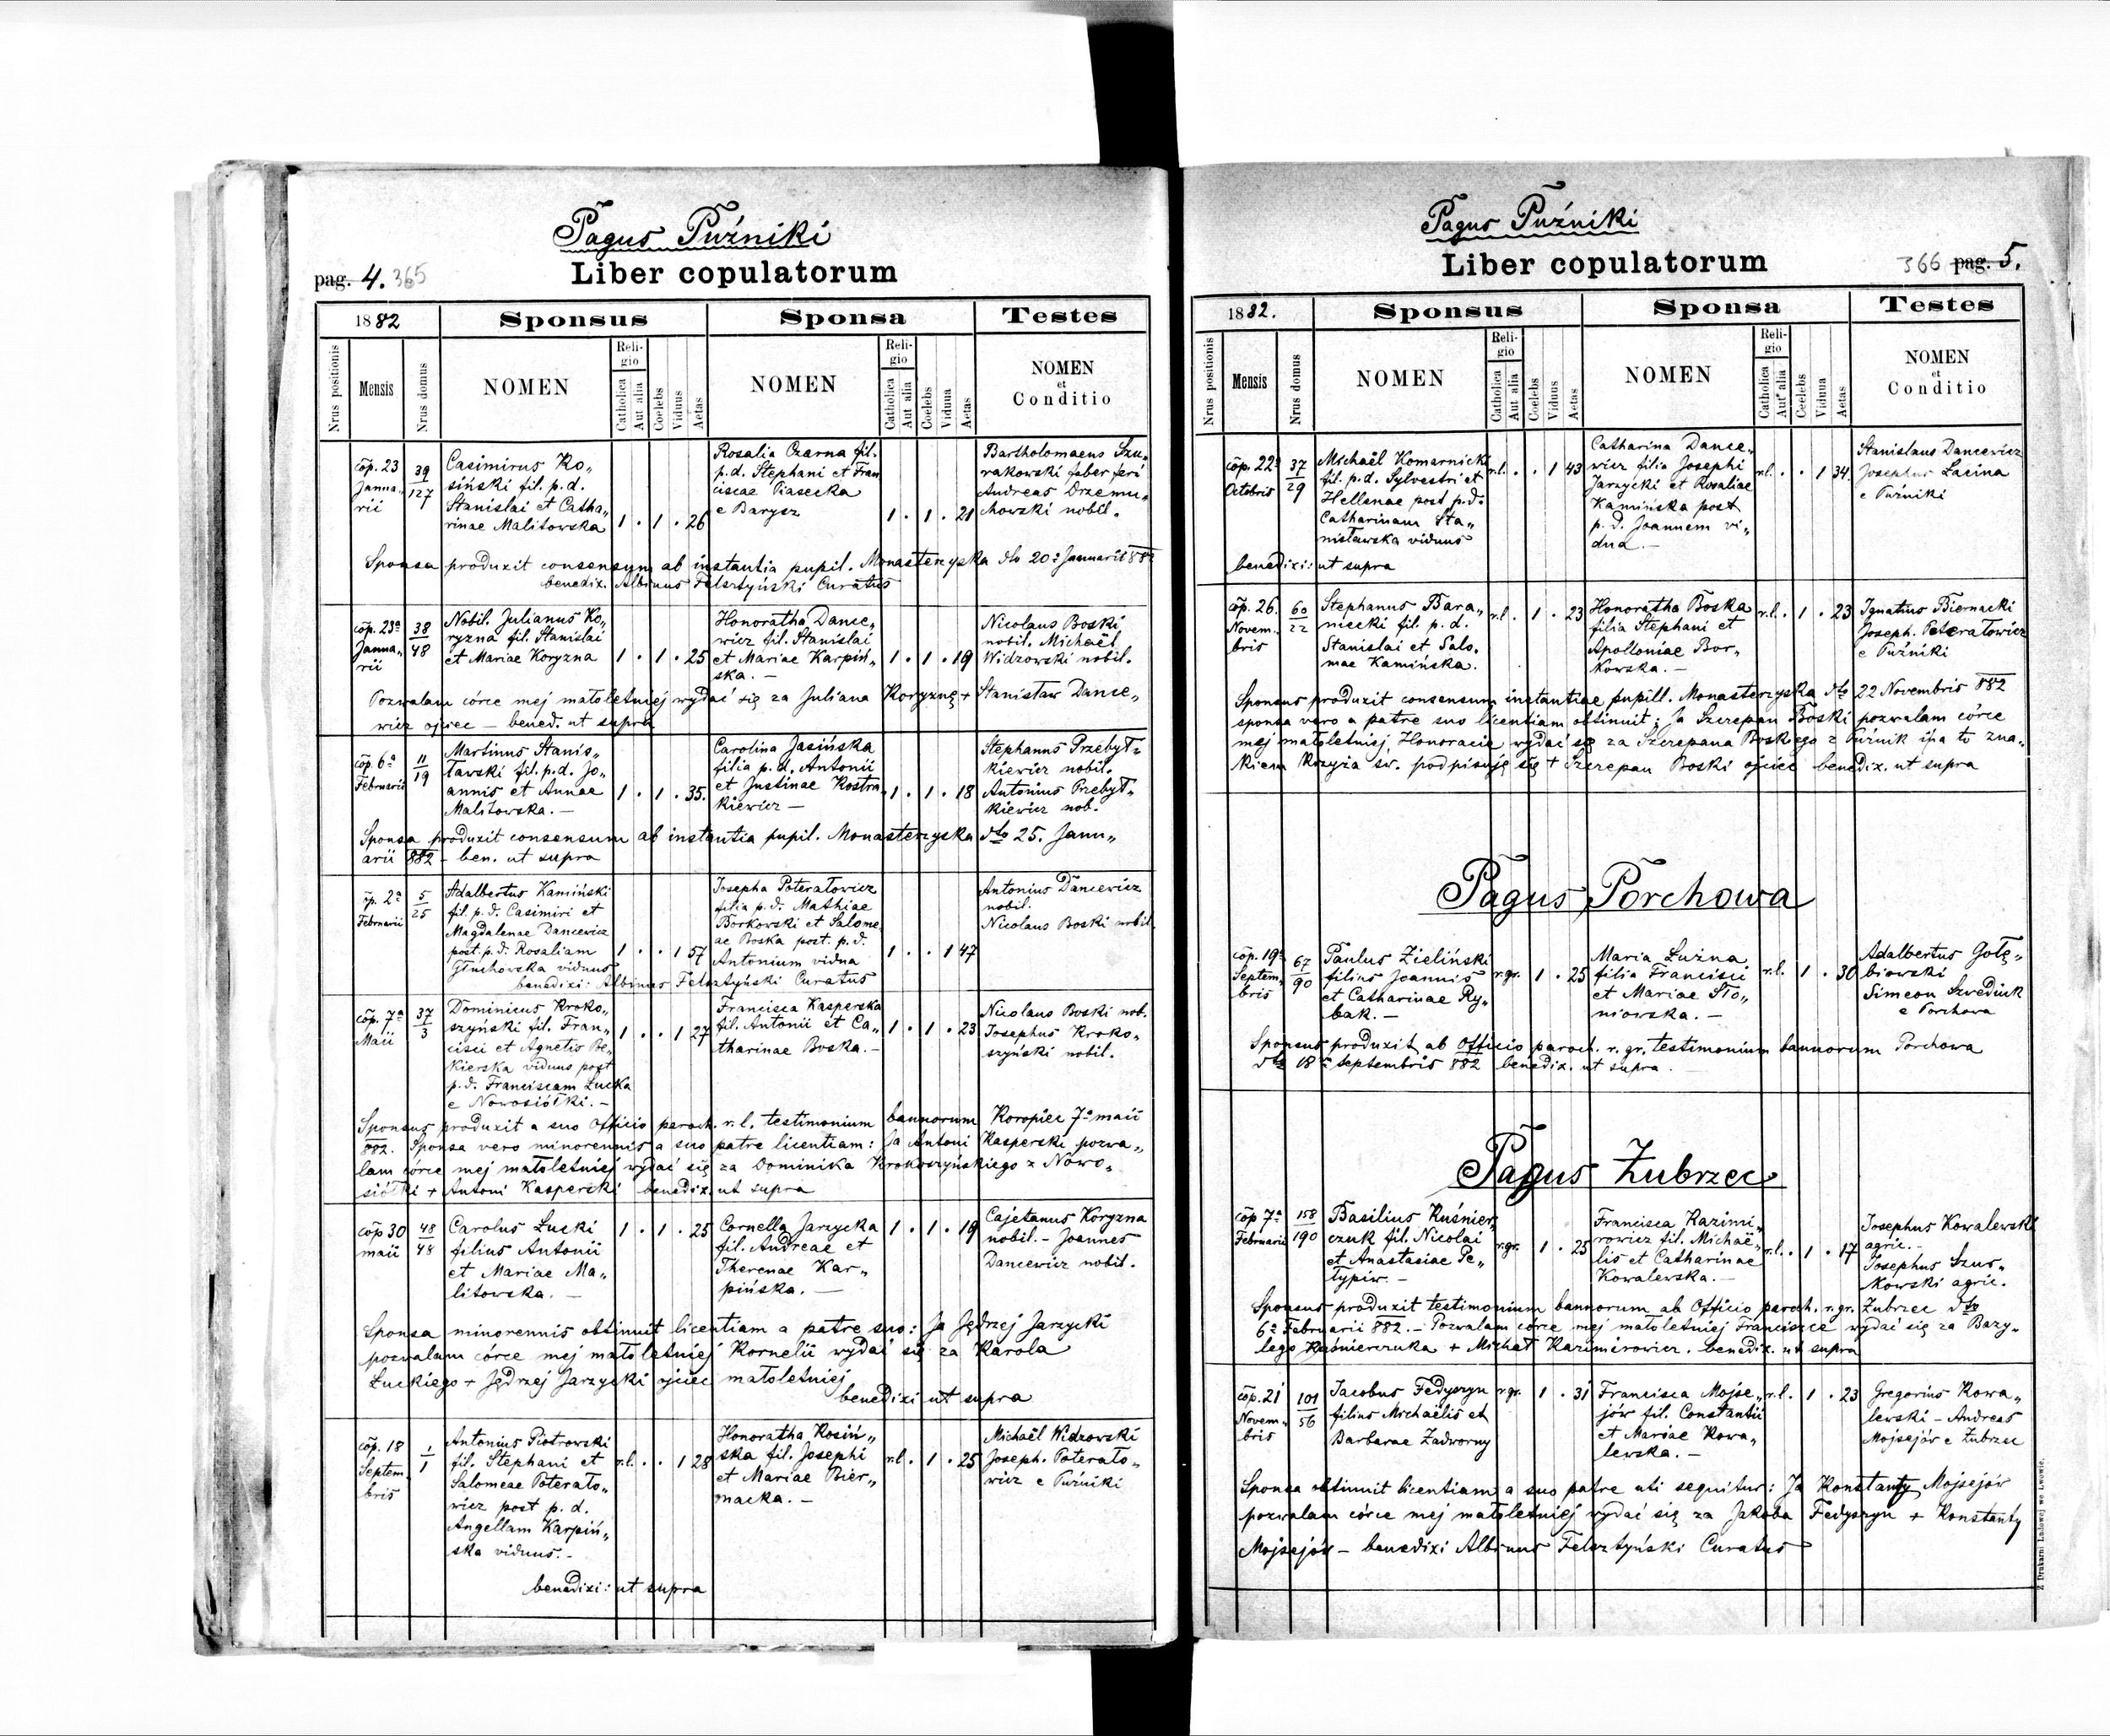 Pagus Puźniki
pag. 4. 365
Liber copulatorum
1882
Sponsus
Sponsa
Testes
Nrus positionis
Mensis
Nrus domus
NOMEN
Religio
Catholica
Aut alia
Coelebs
Viduus
Aetas
NOMEN
Religio
Catholica
Aut alia
Coelebs
Vidua
Aetas
NOMEN
et
Conditio
cop. 23
Janua„
rii
39
127
Casimirus Ko„
siński fil. p. d.
Stanislai et Catha„
rinae Malitowska
1 . 1 . 26
Rosalia Czarna fil.
p. d. Stephani et Fran
ciscae Piasecka
e Barysz
1 . 1 . 21
Bartholomaeus Szu„
rakowski faber feri
Andreas Drzemu„
chowski nobil.
Sponsa produxit consensum ab instantia pupil. Monasterzyska dto 20a Januarii 882
benedix. Albinus Felsztyński Curatus
cop. 23a
Janua„
rii
38
48
Nobil. Julianus Ko„
ryzna fil. Stanislai
et Mariae Koryzna
1 . 1 . 25
Honoratha Dance„
wicz fil. Stanislai
et Mariae Karpiń„
ska. —
1 . 1 . 19
Nicolaus Boski
nobil. Michaël
Widzowski nobil.
Pozwalam córce mej małoletniéj wydać się za Juliana Koryznę + Stanisław Dance„
wicz ojciec — bened. ut supra
cop. 6a
Februarii
11
19
Martinus Stanis„
ławski fil. p. d. Jo„
annis et Annae
Malitowska. —
1 . 1 . 35.
Carolina Jasińska
filia p. d. Antonii
et Justinae Kostra„
kiewicz —
1 . 1 . 18
Stephanus Przebył„
kiewicz nobil.
Antonius Przebył„
kiewicz nob.
Sponsa produxit consensum ab instantia pupil. Monasterzyska dto 25. Janu„
arii 882 — ben. ut supra
cop. 2a
Februarii
5
25
Adalbertus Kamiński
fil. p. d. Casimiri et
Magdalenae Dancewicz
post. p. d. Rosaliam
Głuchowska viduus
1 . . 1 57
Josepha Poteratowicz
filia p. d. Mathiae
Borkowski et Salome„
ae Boska post. p. d.
Antonium vidua
1 . . 1 47
Antonius Dancewicz
nobil.
Nicolaus Boski nobil.
benedixi: Albinus Felsztyński Curatus
cop. 7a
Maii
37
3
Dominicus Kroko„
szyński fil. Fran„
cisci et Agnetis Be„
kierska viduus post
p. d. Franciscam Łucka
e Nowosiółki. —
1 . . 1 27
Francisca Kasperska
fil. Antonii et Ca„
tharinae Boska. —
1 . 1 . 23
Nicolaus Boski nob.
Josephus Kroko„
szyński nobil.
Sponsus produxit a suo Officio paroch. r. l. testimonium bannorum Koropiec 7a maii
882. Sponsa vero minorennis a suo patre licentiam: Ja Antoni Kasperski pozwa„
lam córce mej małoletniéj wydać się za Dominika Krokoszyńskiego z Nowo„
siółki + Antoni Kasperski benedix. ut supra
cop 30
maii
48
48
Carolus Łucki
filius Antonii
et Mariae Ma„
litowska. —
1 . 1 . 25
Cornella Jarzycka
fil. Andreae et
Therenae Kar„
pińska. —
1 . 1 . 19
Cajetanus Koryzna
nobil. — Joannes
Dancewicz nobil.
Sponsa minorennis obtinuit licentiam a patre suo: Ja Jędrzej Jarzycki
pozwalam córce mej małoletniéj Kornelii wydać się za Karola
Łuckiego + Jędrzej Jarzycki ojciec małoletniej
benedixi ut supra
cop. 18
Septem„
bris
1
1
Antonius Piotrowski
fil. Stephani et
Salomeae Poterato„
wicz post p. d.
Angellam Karpiń„
ska viduus. —
r.l. . . 1 28
Honoratha Kosiń„
ska fil. Josephi
et Mariae Bier„
nacka. —
r.l. . 1 . 25
Michaël Widzowski
Joseph. Poterato„
wicz e Puźniki
benedixi: ut supra
Pagus Puźniki
Liber copulatorum
366 pag. 5.
1882.
Sponsus
Sponsa
Testes
Nrus positionis
Mensis
Nrus domus
NOMEN
Religio
Catholica
Aut alia
Coelebs
Viduus
Aetas
NOMEN
Religio
Catholica
Aut alia
Coelebs
Vidua
Aetas
NOMEN
et
Conditio
cop. 22a
Octobris
37
29
Michaël Komarnicki
fil. p. d. Sylvestri et
Hellenae post p. d.
Catharinam Sta„
nisławska viduus
r.l. . . 1 43
Catharina Dance„
wicz filia Josephi
Jarzycki et Rosaliae
Kamińska post
p. d. Joannem vi„
dua. —
r.l. . . 1 34.
Stanislaus Dancewicz
Josephus Lacina
e Puźniki
benedixi: ut supra
cop. 26.
Novem„
bris
60
22
Stephanus Bara„
niecki fil. p. d.
Stanislai et Salo„
mae Kamińska.
r.l. . 1 . 23
Honoratha Boska
filia Stephani et
Apolloniae Bor„
kowska. —
r.l. . 1 . 23
Ignatius Biernacki
Joseph. Poteratowicz
e Puźniki
Sponsus produxit consensum instantiae pupill. Monasterzyska dto 22 Novembris 882
sponsa vero a patre suo licentiam obtinuit; Ja Szczepan Boski pozwalam córce
mej małoletniéj, Honoracie wydać się za Szczepana Boskiego z Puźnik i na to zna„
kiem Krzyża św. podpisuję się + Szczepan Boski ojciec benedix. ut supra
Pagus Porchowa
cop. 19a
Septem„
bris
67
90
Paulus Zieliński
filius Joannis
et Catharinae Ry„
bak. —
r.gr. 1 . 25
Maria Luzna
filia Francisci
et Mariae Sło„
niowska. —
r.l. 1 . 30
Adalbertus Gołę„
biowski
Simeon Szwediuk
e Porchowa
Sponsus produxit ab Officio paroch. r. gr. testimonium bannorum Porchowa
dto 18a septembris 882 benedix. ut supra.
Pagus Zubrzec
cop 7a
Februarii
158
190
Basilius Kuśnier„
czuk fil. Nicolai
et Anastasiae Pe„
łypiw. —
r.gr. 1 . 25
Francisca Kazimi„
rowicz fil. Michaë„
lis et Catharinae
Kowalewska. —
r.l. . 1 . 17
Josephus Kowalewski
agric. —
Josephus Szus„
kowski agric.
Sponsus produxit testimonium bannorum ab Officio paroch. r. gr. Zubrzec dto
6a Februarii 882. — Pozwalam córce mej małoletniéj Franciszce wydać się za Bazy„
lego Kuśnierczuka + Michał Kazimirowicz. benedix. ut supra
cop. 21
Novem„
bris
101
56
Jacobus Fedyszyn
filius Michaëlis et
Barbarae Zadworny
r.gr. 1 . 31
Francisca Mojse„
jów fil. Constantii
et Mariae Kowa„
lewska. —
r.l. 1 . 23
Gregorius Kowa„
lewski — Andreas
Mojsejów e Zubrzec
Sponsa obtinuit licentiam a suo patre uti sequitur: Ja Konstanty Mojsejów
pozwalam córce mej małoletniéj wydać się za Jakóba Fedyszyn + Konstanty
Mojsejów — benedixi Albinus Felsztyński Curatus
Z Drukarni Ludowej we Lwowie.